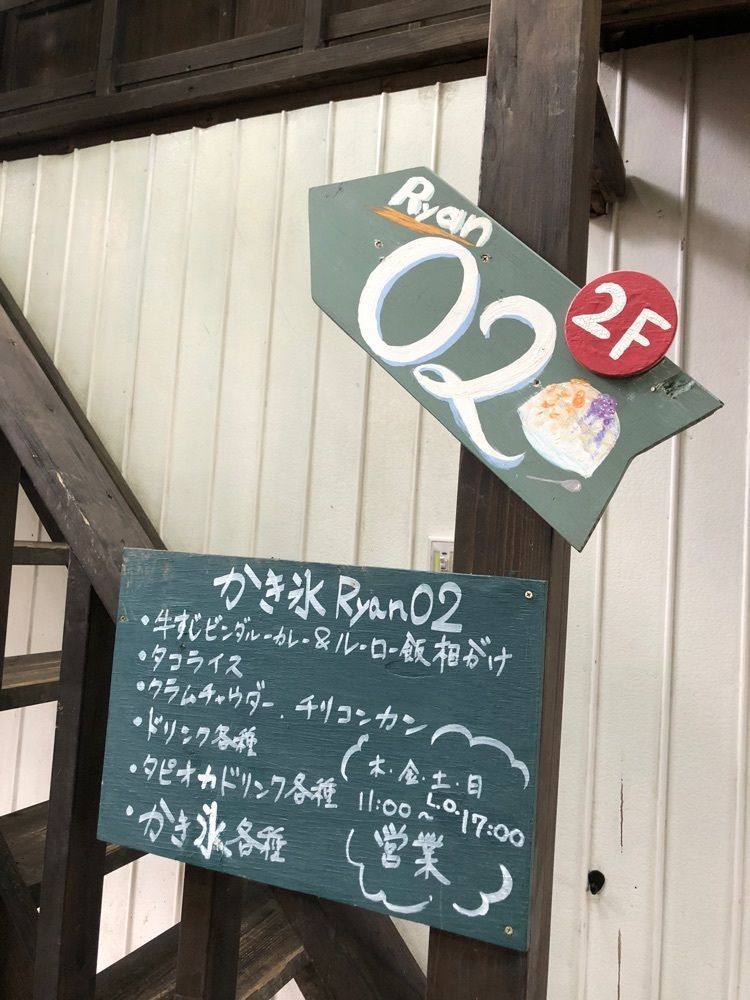 Ryan
02
2F
かき氷 Ryan02
・牛すじビンダルーカレー&ルーロー飯相がけ
・タコライス
・クラムチャウダー. チリコンカン
・ドリンク各種
・タピオカドリンク各種
・かき氷各種
木・金・土・日
11:00~L.O.17:00
営業